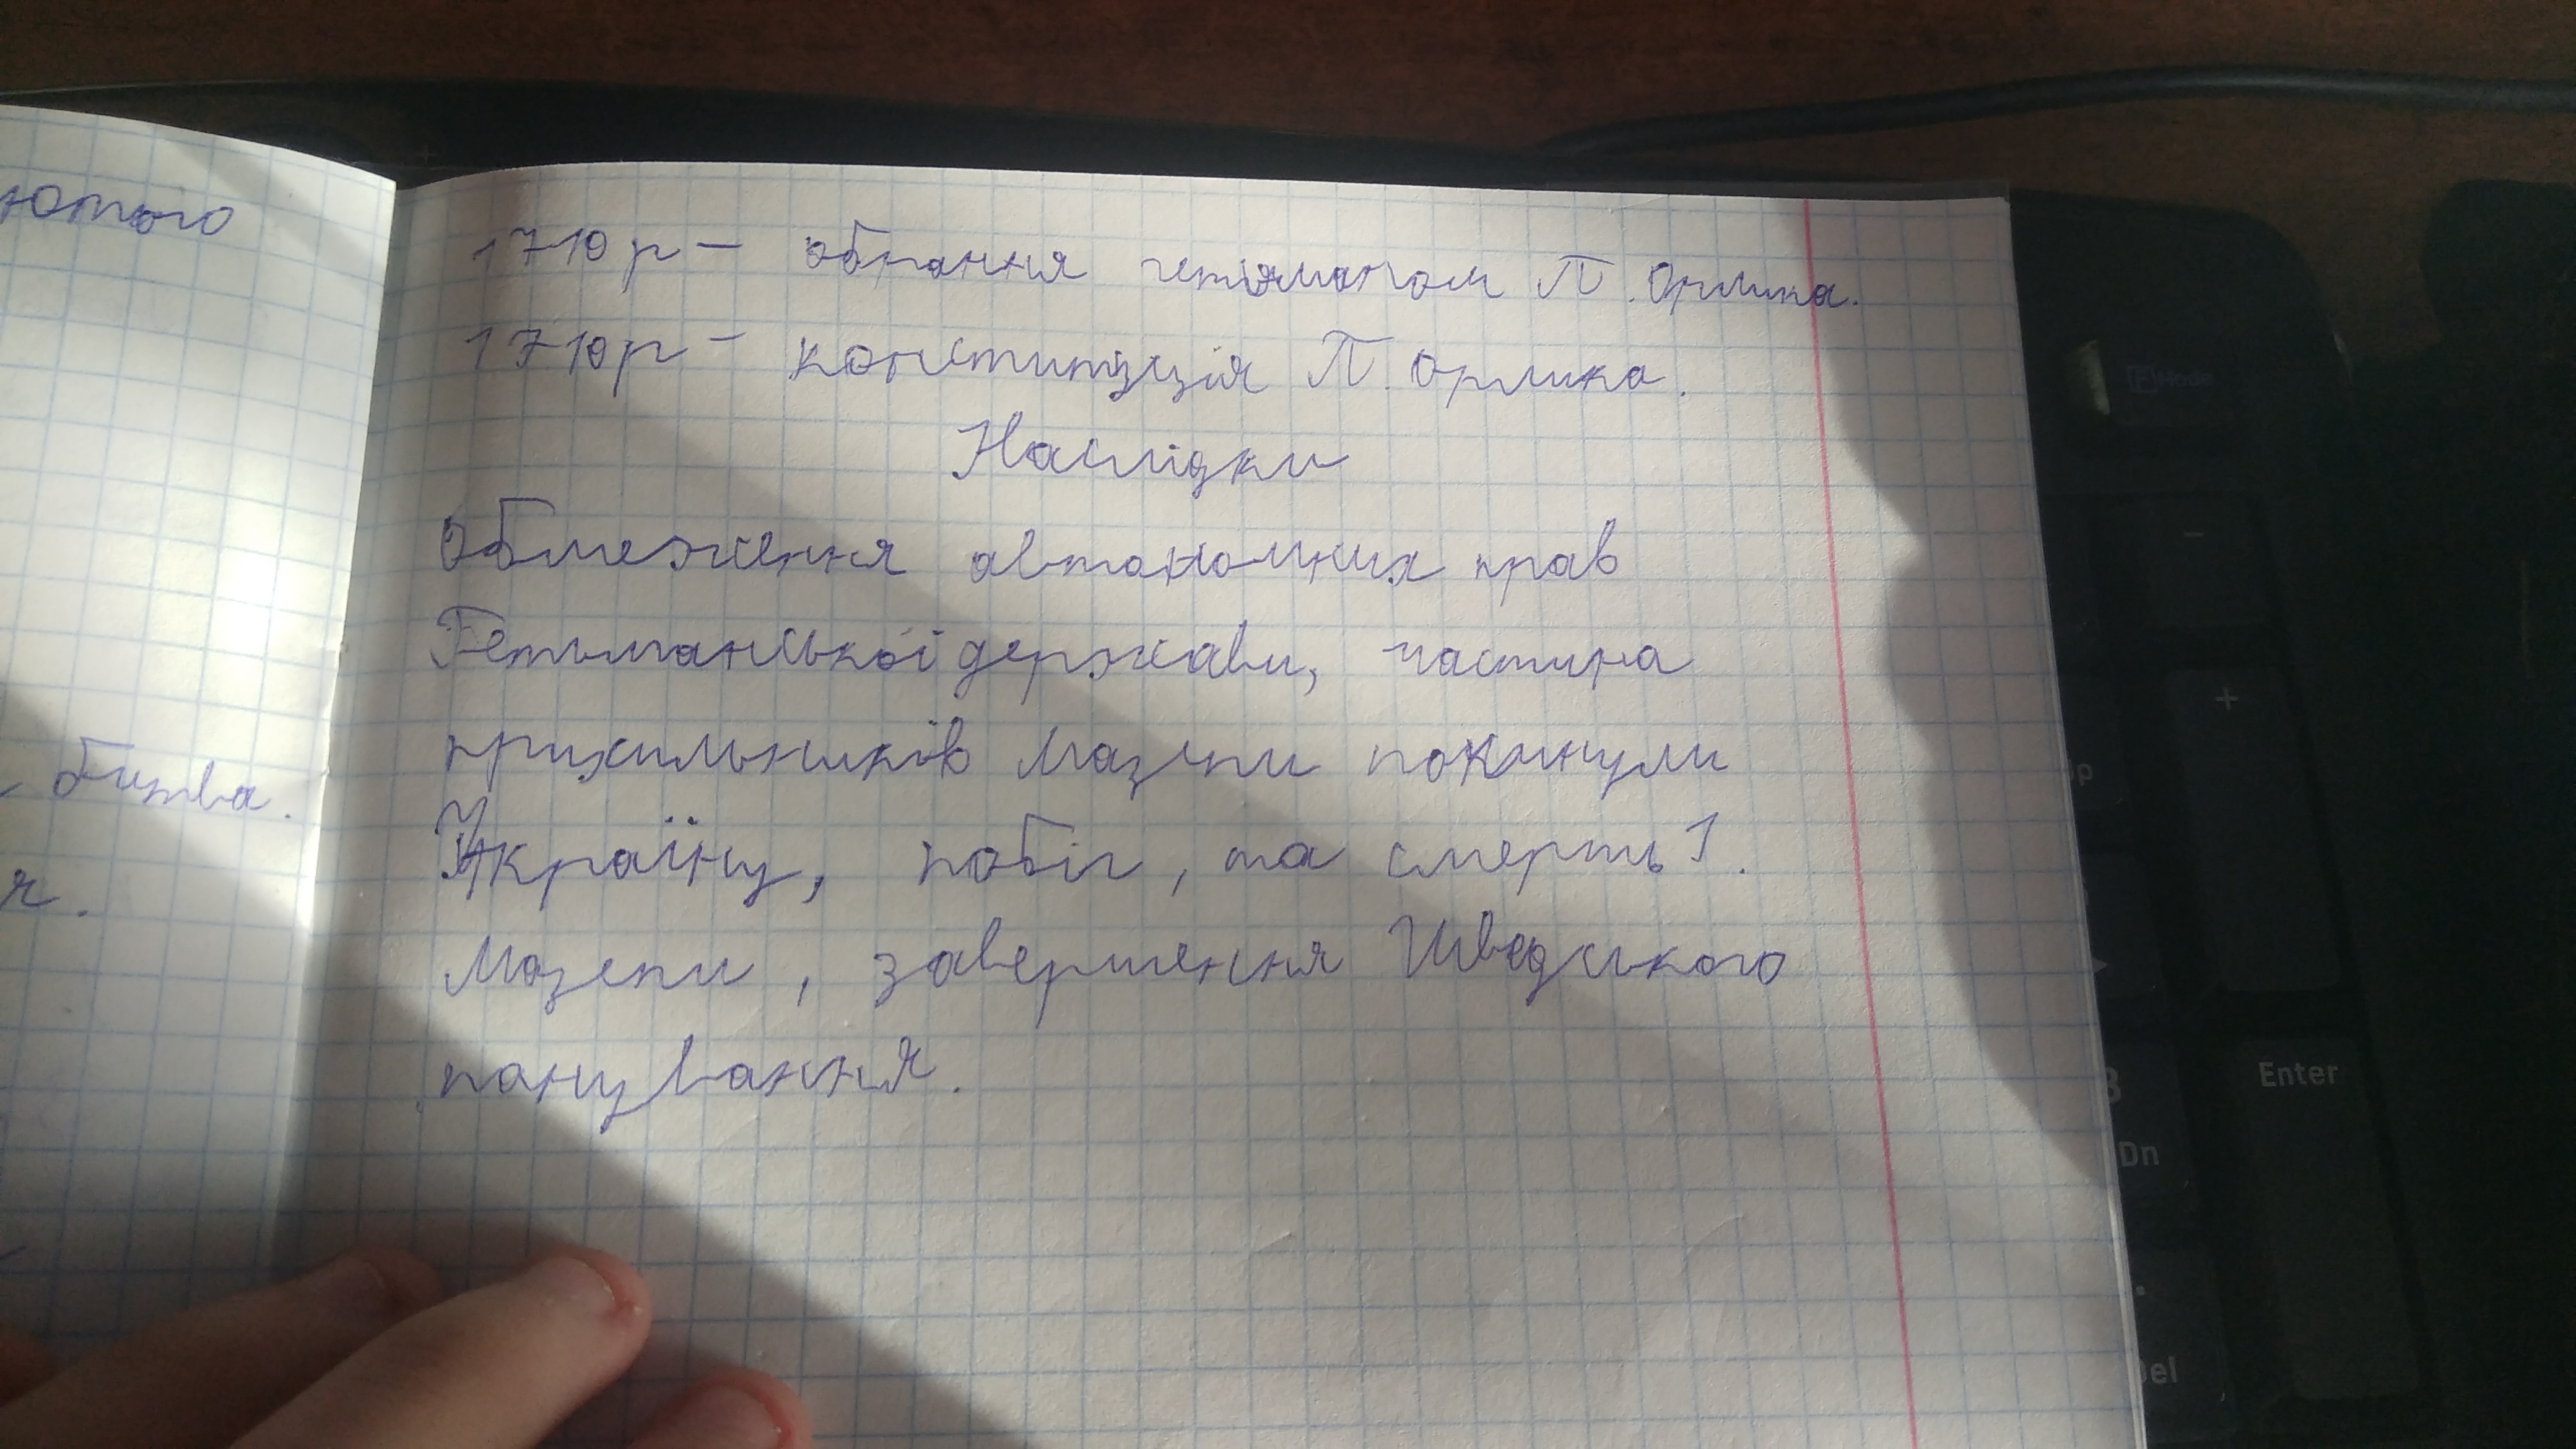 ютого
битва.
я.
1710 р – обрання гетьманом П. Орлика.
1710р – конституція П. Орлика.
Наслідки
Обмеження автономних прав
Гетьманської держави, частина
прихильників Мазепи покинули
Україну, побіг, та смерть І.
Мазепи, завершення Шведського
панування.
+
Enter
Dn
Del